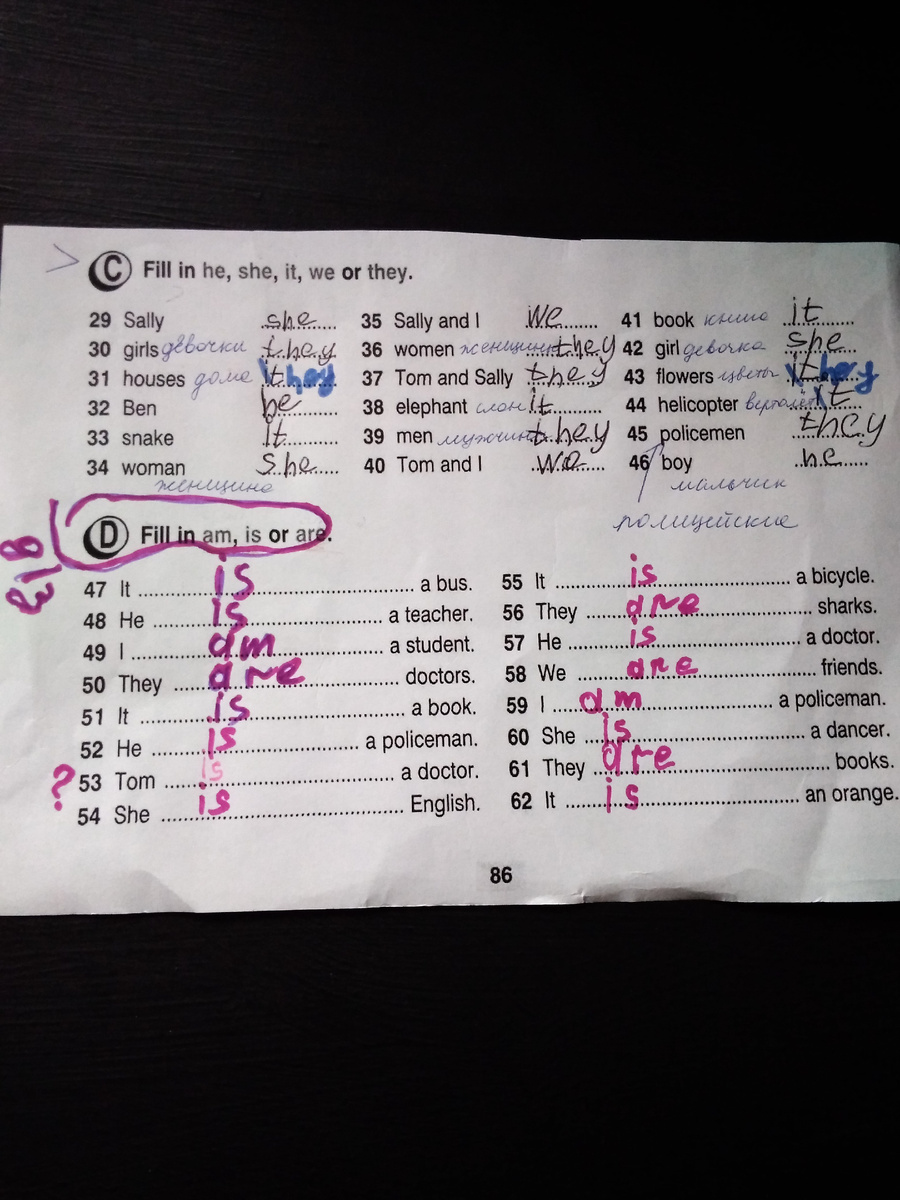 C Fill in he, she, it, we or they.
29 Sally she 35 Sally and I we 41 book книга it
30 girls девочки they 36 women женщины they 42 girl девочка she
31 houses дома they 37 Tom and Sally they 43 flowers цветы they
32 Ben he 38 elephant слон it 44 helicopter вертолет it
33 snake It 39 men мужчины they 45 policemen they
34 woman she 40 Tom and I we 46 boy he
женщина мальчик
полицейские
D Fill in am, is or are.
47 It is a bus. 55 It is a bicycle.
48 He is a teacher. 56 They are sharks.
49 I am a student. 57 He is a doctor.
50 They are doctors. 58 We are friends.
51 It is a book. 59 I am a policeman.
52 He is a policeman. 60 She is a dancer.
? 53 Tom is a doctor. 61 They are books.
54 She is English. 62 It is an orange.
86